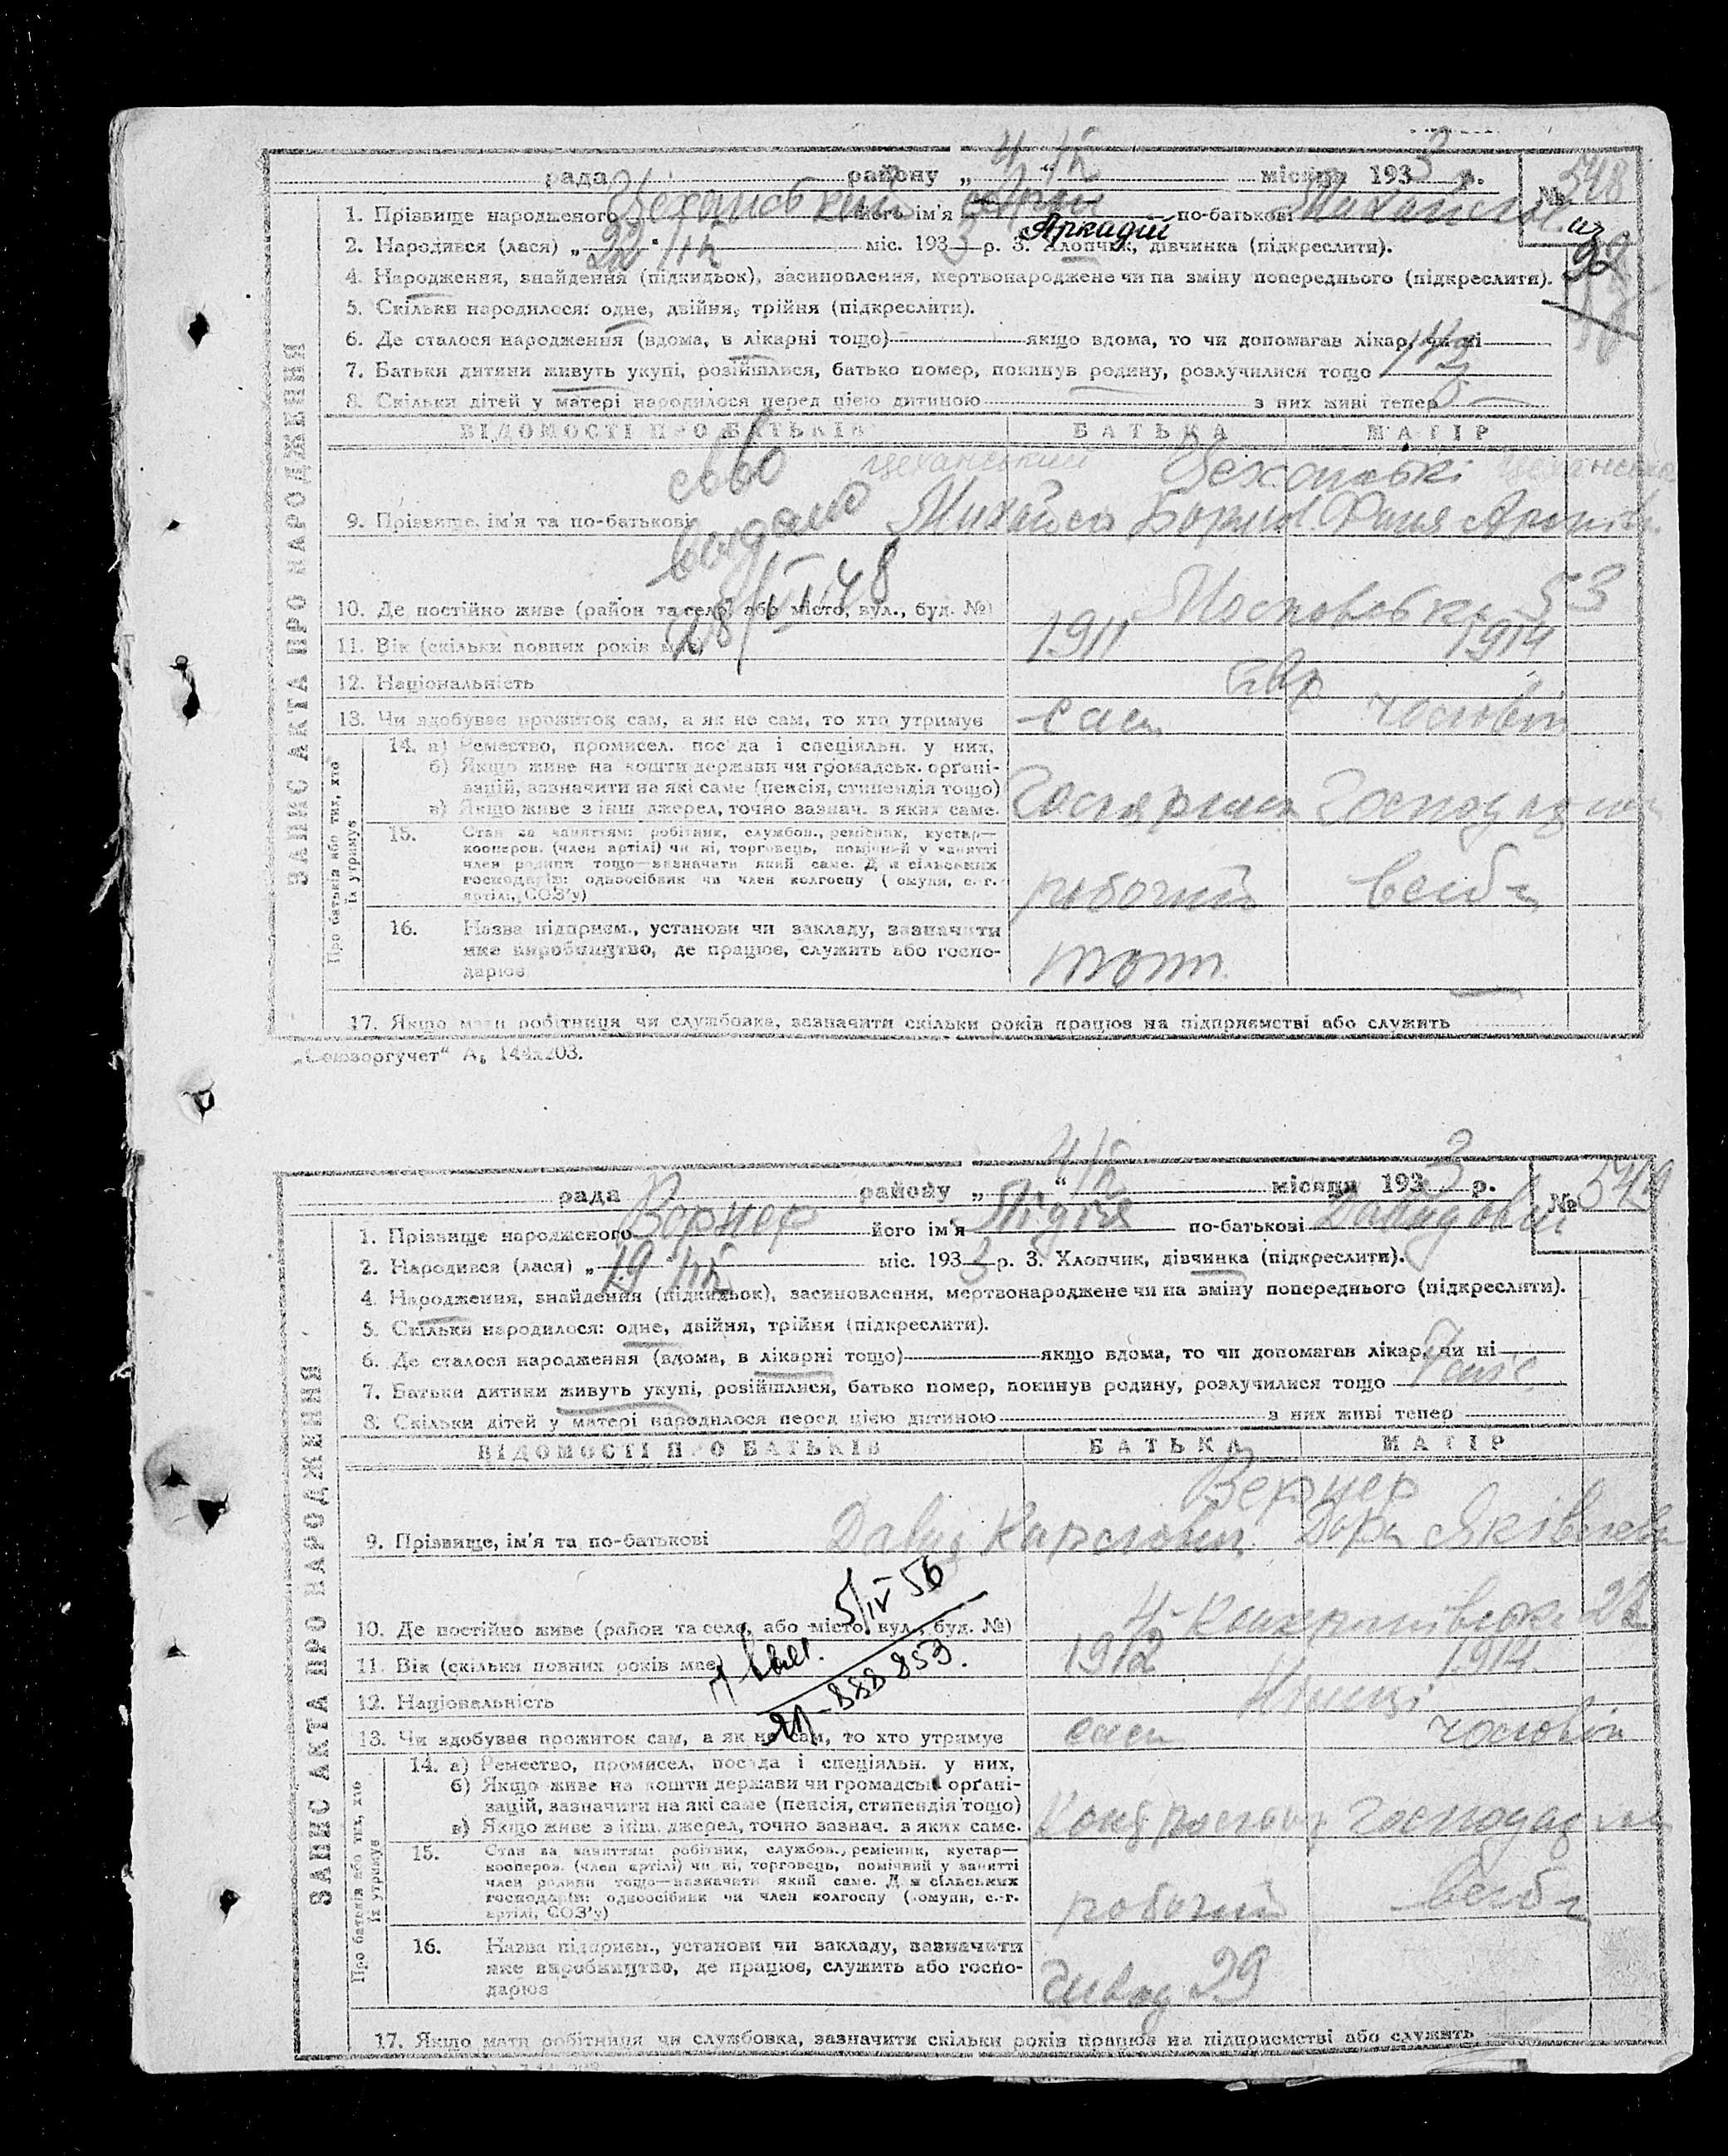 рада району „ 4 “ місяця 1933 р. № 548
1. Прізвище народженого Цехановський його ім'я по-батькові Михайлов.
Аркадій
2. Народився (лася) „ 22 “ міс. 1933 р. 3. Хлопчик, дівчинка (підкреслити).
4. Народження, знайдення (підкидьок), засиновлення, мертвонароджене чи на зміну попереднього (підкреслити).
5. Скільки народилося: одне, двійня, трійня (підкреслити).
6. Де сталося народження (вдома, в лікарні тощо) якщо вдома, то чи допомагав лікар, чи ні
7. Батьки дитини живуть укупі, розійшлися, батько помер, покинув родину, розлучилися тощо
8. Скільки дітей у матері народилося перед цією дитиною з них живі тепер
ЗАПИС АКТА ПРО НАРОДЖЕННЯ
ВІДОМОСТІ ПРО БАТЬКІВ БАТЬКА МАТІР
цеханський
9. Прізвище, ім'я та по-батькові Михайло Борисов. Фаня Аронівн.
видано
10. Де постійно живе (район та село, або місто, вул., буд. №) 53
28/VI 48
11. Вік (скільки повних років має) 1911 1914
12. Національність євр
13. Чи здобуває прожиток сам, а як не сам, то хто утримує сам чоловік
Про батьків або тих, хто їх утримує
14. а) Ремество, промисел, посада і спеціяльн. у них,
б) Якщо живе на кошти держави чи громадськ. орґані-
зацій, зазначити на які саме (пенсія, стипендія тощо)
в) Якщо живе з інш. джерел, точно зазнач. з яких саме.
Господарка
15. Стан за заняттям: робітник, службов., ремісник, кустар—
кооперов. (член артілі) чи ні, торговець, помічний у занятті
член родини тощо—зазначати який саме. Для сільських
господарів: одноосібник чи член колгоспу (комуни, с.-г.
артілі, СОЗ'у)
робочий
16. Назва підприєм., установи чи закладу, зазначити
яке виробництво, де працює, служить або госпо-
дарює
17. Якщо мати робітниця чи службовка, зазначити скільки років працює на підприємстві або служить
„Союзоргучет“ А₆ 144х203.
рада району „ 4 “ місяця 1933 р. № 549
1. Прізвище народженого Вернер його ім'я Лідія по-батькові Давидовн
2. Народився (лася) „ 19 “ міс. 1933 р. 3. Хлопчик, дівчинка (підкреслити).
4. Народження, знайдення (підкидьок), засиновлення, мертвонароджене чи на зміну попереднього (підкреслити).
5. Скільки народилося: одне, двійня, трійня (підкреслити).
6. Де сталося народження (вдома, в лікарні тощо) якщо вдома, то чи допомагав лікар, чи ні
7. Батьки дитини живуть укупі, розійшлися, батько помер, покинув родину, розлучилися тощо
8. Скільки дітей у матері народилося перед цією дитиною з них живі тепер
ЗАПИС АКТА ПРО НАРОДЖЕННЯ
ВІДОМОСТІ ПРО БАТЬКІВ БАТЬКА МАТІР
Вернер
9. Прізвище, ім'я та по-батькові Давид Карлович Дора Яківлевн
5/IV 56
10. Де постійно живе (район та село, або місто, вул., буд. №)
11. Вік (скільки повних років має) 1912 1914
ЯП-888853.
12. Національність Німці
13. Чи здобуває прожиток сам, а як не сам, то хто утримує сам чоловік
Про батьків або тих, хто їх утримує
14. а) Ремество, промисел, посада і спеціяльн. у них,
б) Якщо живе на кошти держави чи громадськ. орґані-
зацій, зазначити на які саме (пенсія, стипендія тощо)
в) Якщо живе з інш. джерел, точно зазнач. з яких саме.
господарка
15. Стан за заняттям: робітник, службов., ремісник, кустар—
кооперов. (член артілі) чи ні, торговець, помічний у занятті
член родини тощо—зазначати який саме. Для сільських
господарів: одноосібник чи член колгоспу (комуни, с.-г.
артілі, СОЗ'у)
робочий
16. Назва підприєм., установи чи закладу, зазначити
яке виробництво, де працює, служить або госпо-
дарює
29
17. Якщо мати робітниця чи службовка, зазначити скільки років працює на підприємстві або служить